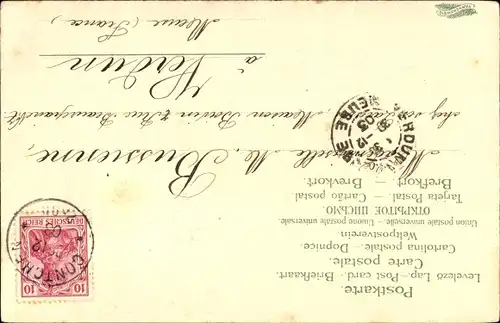 Postkarte.
Levelező Lap. — Post card. Briefkaart.
Carte postale.
Cartolina postale — Dopnice.
Weltpostverein.
Union postale universelle — Unione postale universale
ОТКРЫТОЕ ПИСЬМО
Tarjeta Postal — Cartão postal
Brefkort — Brevkort.
DEUTSCHES REICH
10 10
CONTCHEN
12 03
VERDUN
MEUSE
12
03
Mademoiselle M. Bussienne,
chez Maison
à Verdun
Meuse (France)